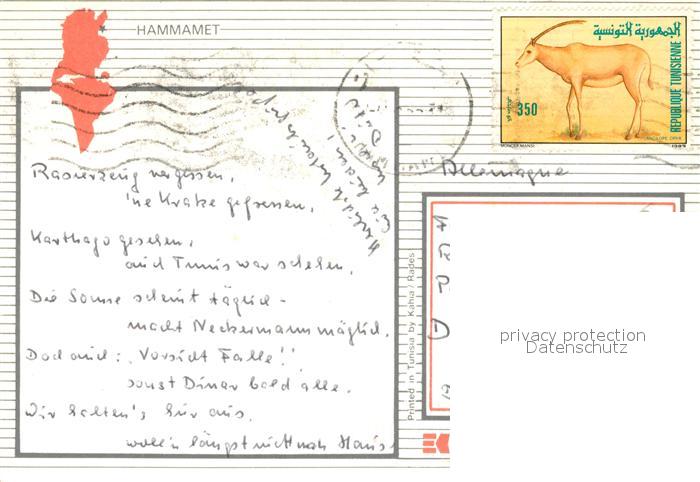 HAMMAMET
الجمهورية التونسية
REPUBLIQUE TUNISIENNE
350
ANTILOPE ORYX
1989
Allemagne
Rasierzeug vergessen,
'ne Krake gefressen.
Karthago gesehen,
auch Tunis war schehen.
Die Sonne scheint täglich -
macht Neckermann möglich.
Doch auch: "Vorsicht Falle"!
sonst Dinar bald alle.
Wir halten's hier aus,
woll'n längst nicht nach Haus
Printed in Tunisia by Kahia / Rades
privacy protection
Datenschutz